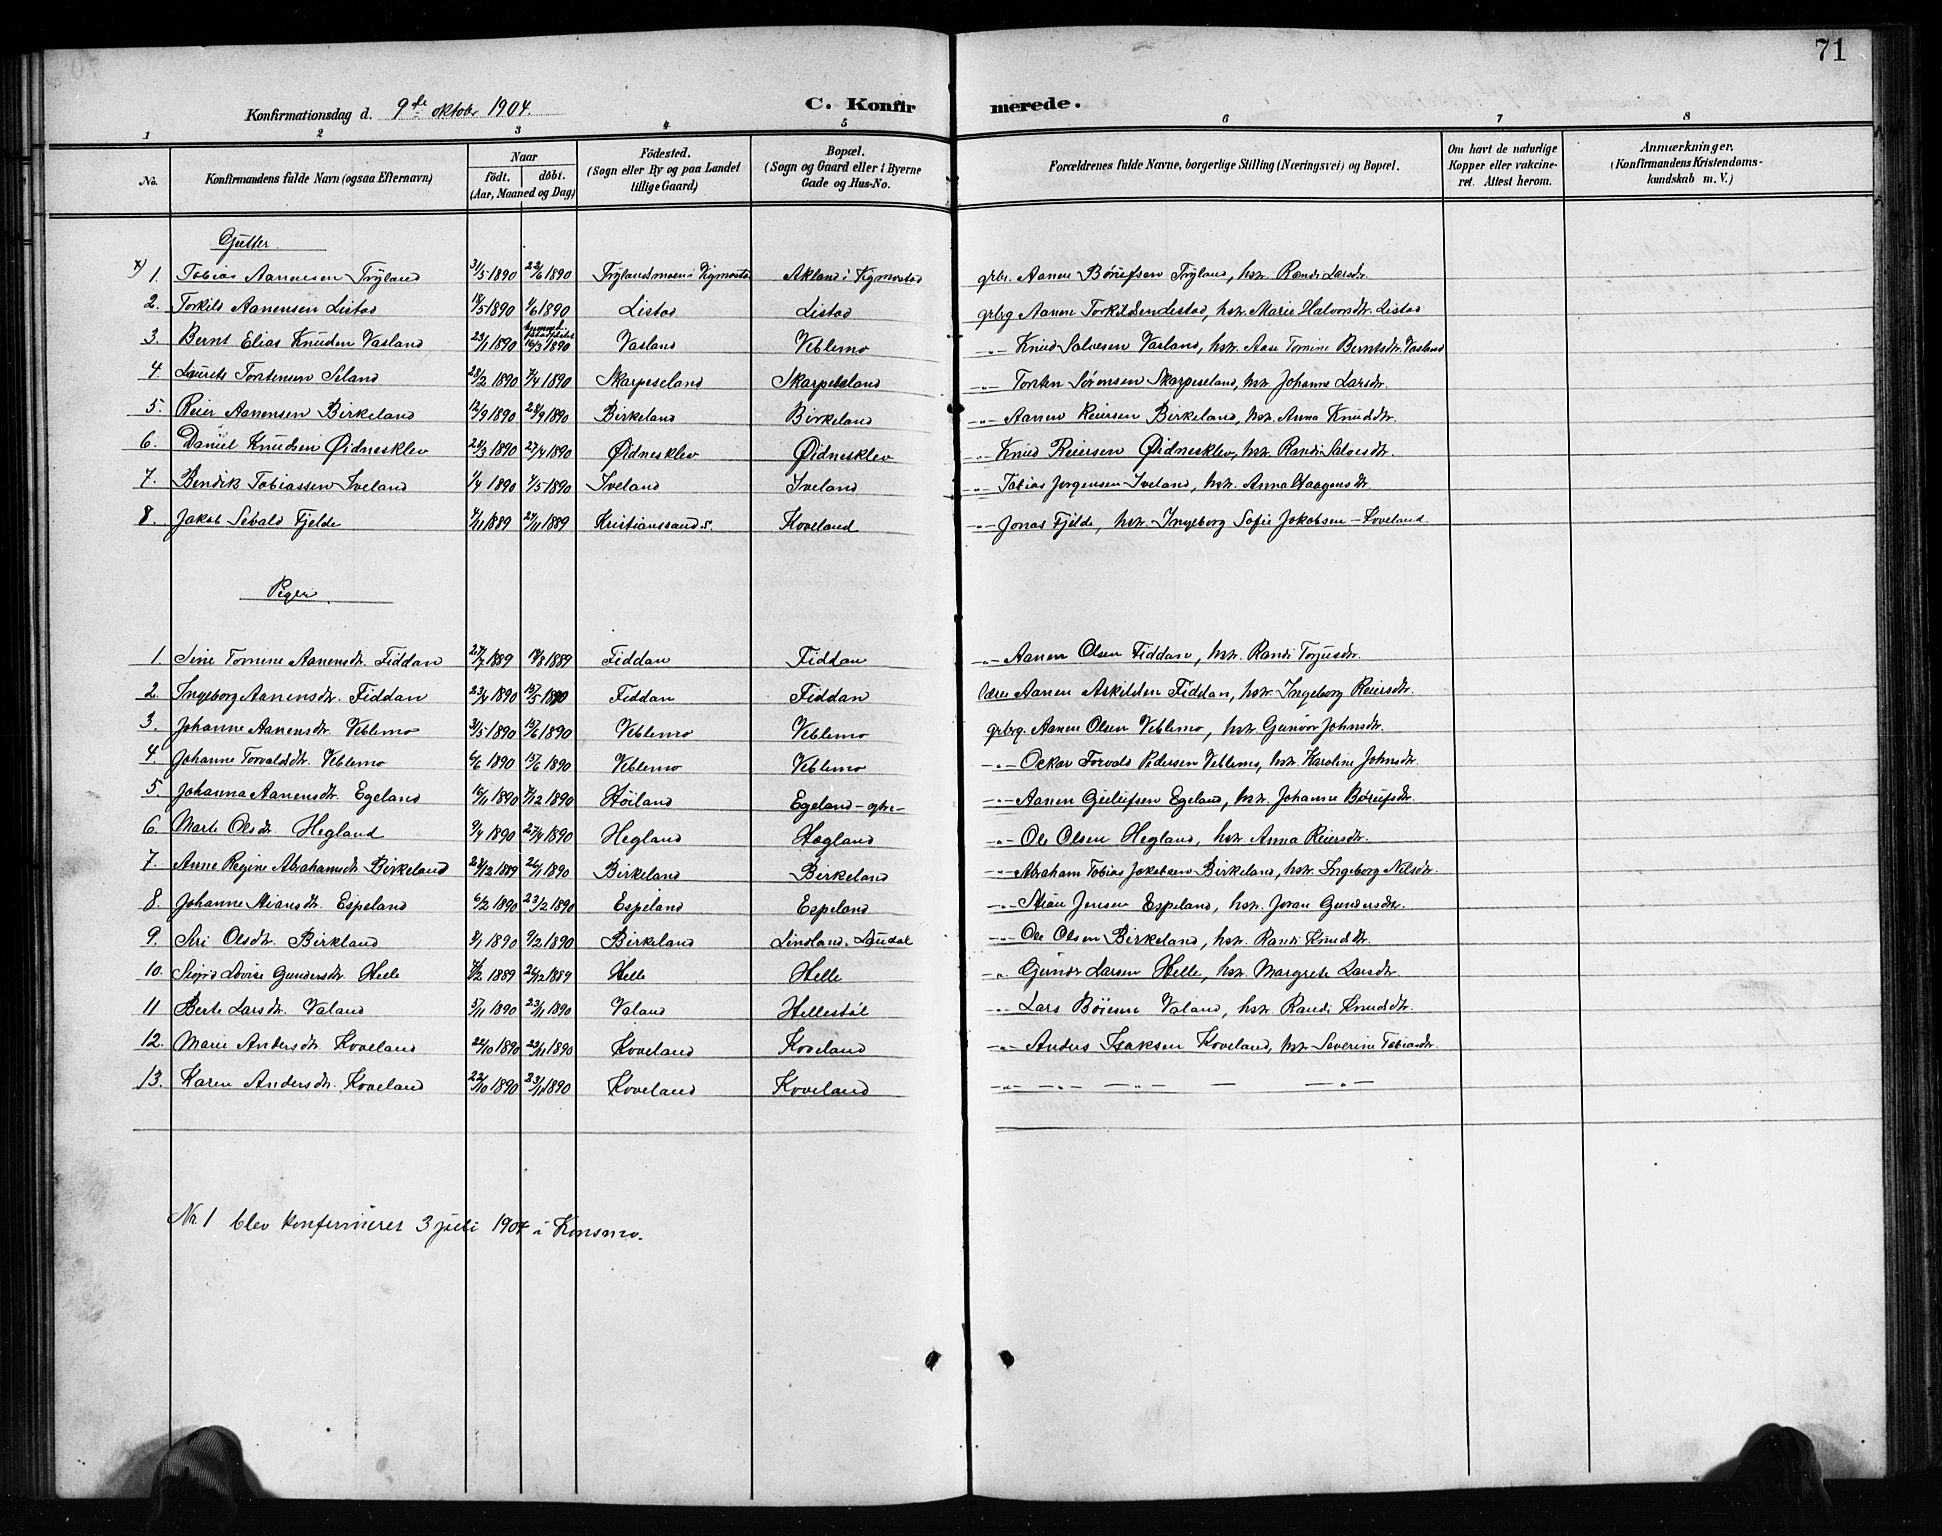 71
Konfirmationsdag d. 9de oktober 1904. C. Konfirmerede.
1 2 3 4 5 6 7 8
No. Konfirmandens fulde Navn (ogsaa Efternavn) Naar født. døbt. (Aar, Maaned og Dag) Fødested. (Sogn eller By og paa Landet tillige Gaard) Bopæl. (Sogn og Gaard eller i Byerne Gade og Hus-No. Forældrenes fulde Navne, borgerlige Stilling (Næringsvei) og Bopæl. Om havt de naturlige Kopper eller vakcineret. Attest herom. Anmærkninger. (Konfirmandens Kristendomskundskab m. V.)
Gutter.
x) 1. Tobias Aanensen Tryland 31/5 1890 22/6 1890 Trylandsmoen i Vigmostad Akland i Vigmostad grbr. Aanen Børufsen Tryland, hstr. Randi Larsdtr.
2. Torkild Aanensen Listad 18/5 1890 1/6 1890 Listad Listad grbrg Aanen Torkildsen Listad, hstr. Marie Halvorsdtr. Listad
3. Bernt Elias Knudsen Vasland 23/1 1890 16/3 1890 Vasland Veblemo -"- Knud Salvesen Vasland, hstr. Aase Tomine Berntsdtr. Vasland
4. Laurits Torstensen Seland 23/2 1890 7/4 1890 Skarpeseland Skarpeseland -"- Torsten Sørensen Skarpeseland, hstr. Johanne Larsdtr.
5. Reier Aanensen Birkeland 12/9 1890 28/9 1890 Birkeland Birkeland -"- Aanen Reiersen Birkeland, hstr. Anna Knudsdtr.
6. Daniel Knudsen Øidnesklev 24/3 1890 27/4 1890 Øidnesklev Øidnesklev -"- Knud Reiersen Øidnesklev, hstr. Randi Salvesdtr.
7. Bendik Tobiassen Iveland 1/4 1890 4/5 1890 Iveland Iveland -"- Tobias Jørgensen Iveland, hstr. Anna Haagensdtr.
8. Jakob Sevald Fjelde 4/11 1889 24/11 1889 Kristianssand S. Koveland -"- Jonas Fjelde, hstr. Ingeborg Sofie Jakobsen - Koveland.
Piger.
1 Sine Tomine Aanensdtr. Fiddan 27/7 1889 18/8 1889 Fiddan Fiddan -"- Aanen Olsen Fiddan, hstr. Randi Torjusdtr.
2. Ingeborg Aanensdtr. Fiddan 23/4 1890 15/5 1890 Fiddan Fiddan Aanen Askildsen Fiddan, hstr. Ingeborg Reiersdtr.
3. Johanne Aanensdtr. Veblemo 31/5 1890 15/6 1890 Veblemo Veblemo grbrg. Aanen Olsen Veblemo, hstr. Gunvor Johnsdtr.
4. Johanne Torvaldsdtr. Veblemo 6/6 1890 15/6 1890 Veblemo Veblemo -"- Oskar Torvald Pedersen Veblemo, hstr. Karoline Johnsdtr.
5. Johanna Aanensdtr. Egeland 16/11 1890 7/12 1890 Høiland Egeland - -"- Aanen Gulufsen Egeland, hstr. Johanne Børufsdtr.
6. Marte Olsdtr. Hegland 9/4 1890 27/4 1890 Hegland Hægland -"- Ole Olsen Hegland, hstr. Anna Reiersdtr.
7. Anne Regine Abrahamsdtr Birkeland 28/12 1889 26/1 1890 Birkeland Birkeland -"- Abraham Tobias Jakobsen Birkeland, hstr. Ingeborg Nilsdtr.
8. Johanne Stiansdtr. Espeland 6/2 1890 23/2 1890 Espeland Espeland -"- Stian Jensen Espeland, hstr. Joran Gundersdtr.
9. Siri Olsdtr. Birkland 8/1 1890 9/2 1890 Birkeland Lindland. Laudal -"- Ole Olsen Birkeland, hstr. Randi Knudsdtr.
10. Sigrid Lovise Gundersdtr. Helle 1889 26/12 1889 Helle Helle -"- Gunder Larsen Helle, hstr. Margrete Larsdtr.
11 Berte Larsdtr. Valand 5/11 1890 23/11 1890 Valand Hellestøl -"- Lars Bøiesen Valand, hstr. Randi Knudsdtr.
12. Marie Andersdtr. Koveland 22/10 1890 23/11 1890 Koveland Koveland -"- Anders Isaksen Koveland, hstr. Severine Tobiasdtr.
13. Karen Andersdtr. Koveland 22/10 1890 23/11 1890 Koveland Koveland -"- -"- -"- - -"-
Nr. 1 blev konfirmeret 3 juli 1904 i Konsmo.